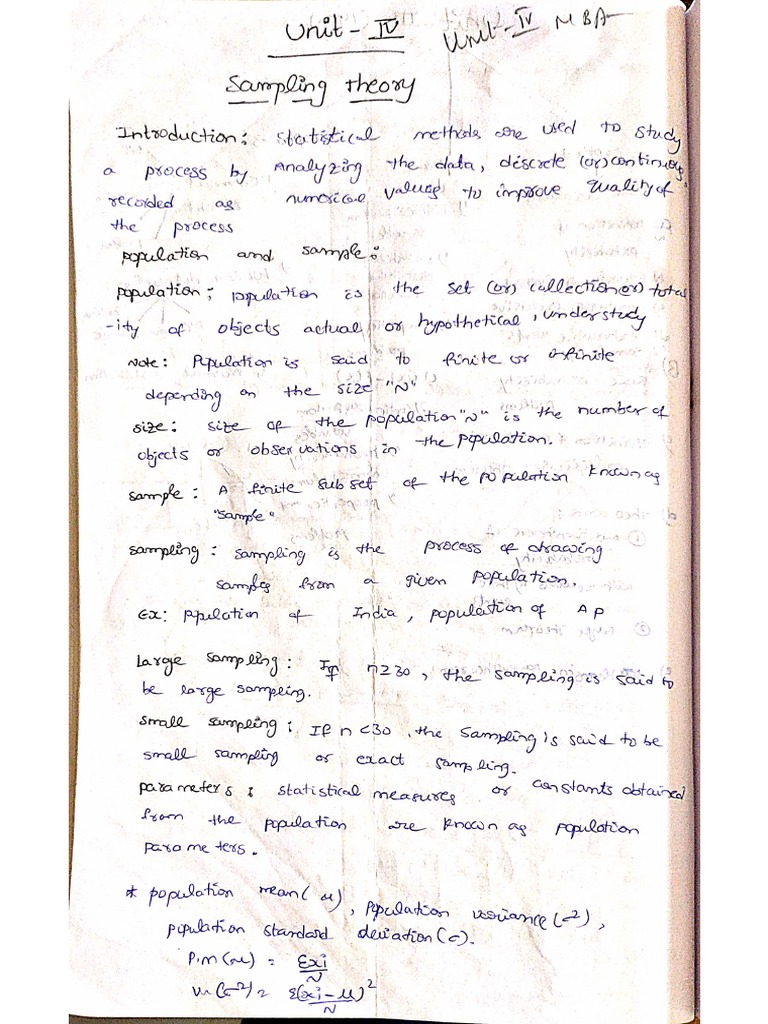 Unit - IV
Unit - IV MBA
Sampling theory
Introduction: Statistical methods are used to study
a process by Analyzing the data, discrete (or) continuous
recorded as numerical values to improve Quality of
the process
population and sample:
population: population is the set (or) collection (or) total
-ity of objects actual or hypothetical, under study
Note: Population is said to finite or infinite
depending on the size "N"
size: size of the population "N" is the number of
objects or observations in the population.
sample: A finite subset of the population known as
"sample"
sampling: sampling is the process of drawing
samples from a given population.
Ex: ppulation of India, population of AP
Large sampling: If n≥30, the sampling is said to
be large sampling.
small sampling: If n<30, the sampling is said to be
small sampling or exact sampling.
parameters: statistical measures or constants obtained
from the population are known as population
parameters.
* population mean (μ), population variance (σ²),
population standard deviation (σ).
P.M (μ) = Σxi/N
(σ²) = Σ(xi-μ)²/N